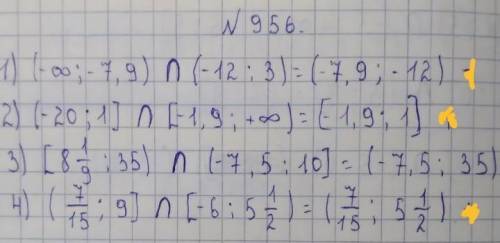 N 956.
1) (-∞ ; -7,9) ∩ (-12 ; 3) = (-7,9 ; -12)
2) (-20 ; 1] ∩ [-1,9 ; +∞) = [-1,9 ; 1]
3) [8 1/9 ; 35) ∩ (-7,5 ; 10] = (-7,5 ; 35)
4) (7/15 ; 9] ∩ [-6 ; 5 1/2) = (7/15 ; 5 1/2)